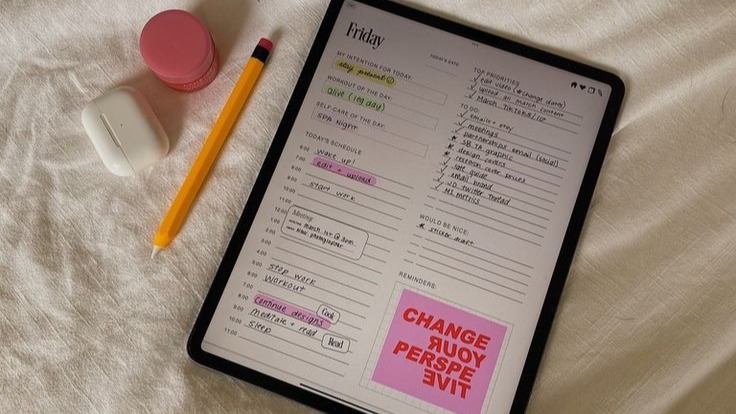 Friday
TODAY'S DATE:
MY INTENTION FOR TODAY:
stay present
WORKOUT OF THE DAY:
Alive (leg day)
SELF-CARE OF THE DAY:
SPA Night
TODAY'S SCHEDULE
6:00 wake up!
7:00 edit + upload
8:00
9:00 start work
10:00
11:00
12:00
1:00
Meeting
march 1st @ 2pm
2:00
3:00
4:00
5:00 stop work
6:00 workout
7:00
8:00 continue designs
Cook
9:00 meditate + read
10:00 sleep
Read
11:00
TOP PRIORITIES
edit video (#change date)
upload all march content
March TikToks
TO DO:
emails + etsy
meetings
partnerships email (social)
SB TA graphic
design covers
cover prices
guide
email brand
twitter thread
metrics
WOULD BE NICE:
sticker draft
REMINDERS:
CHANGE
YOUR
PERSPE
TIVE